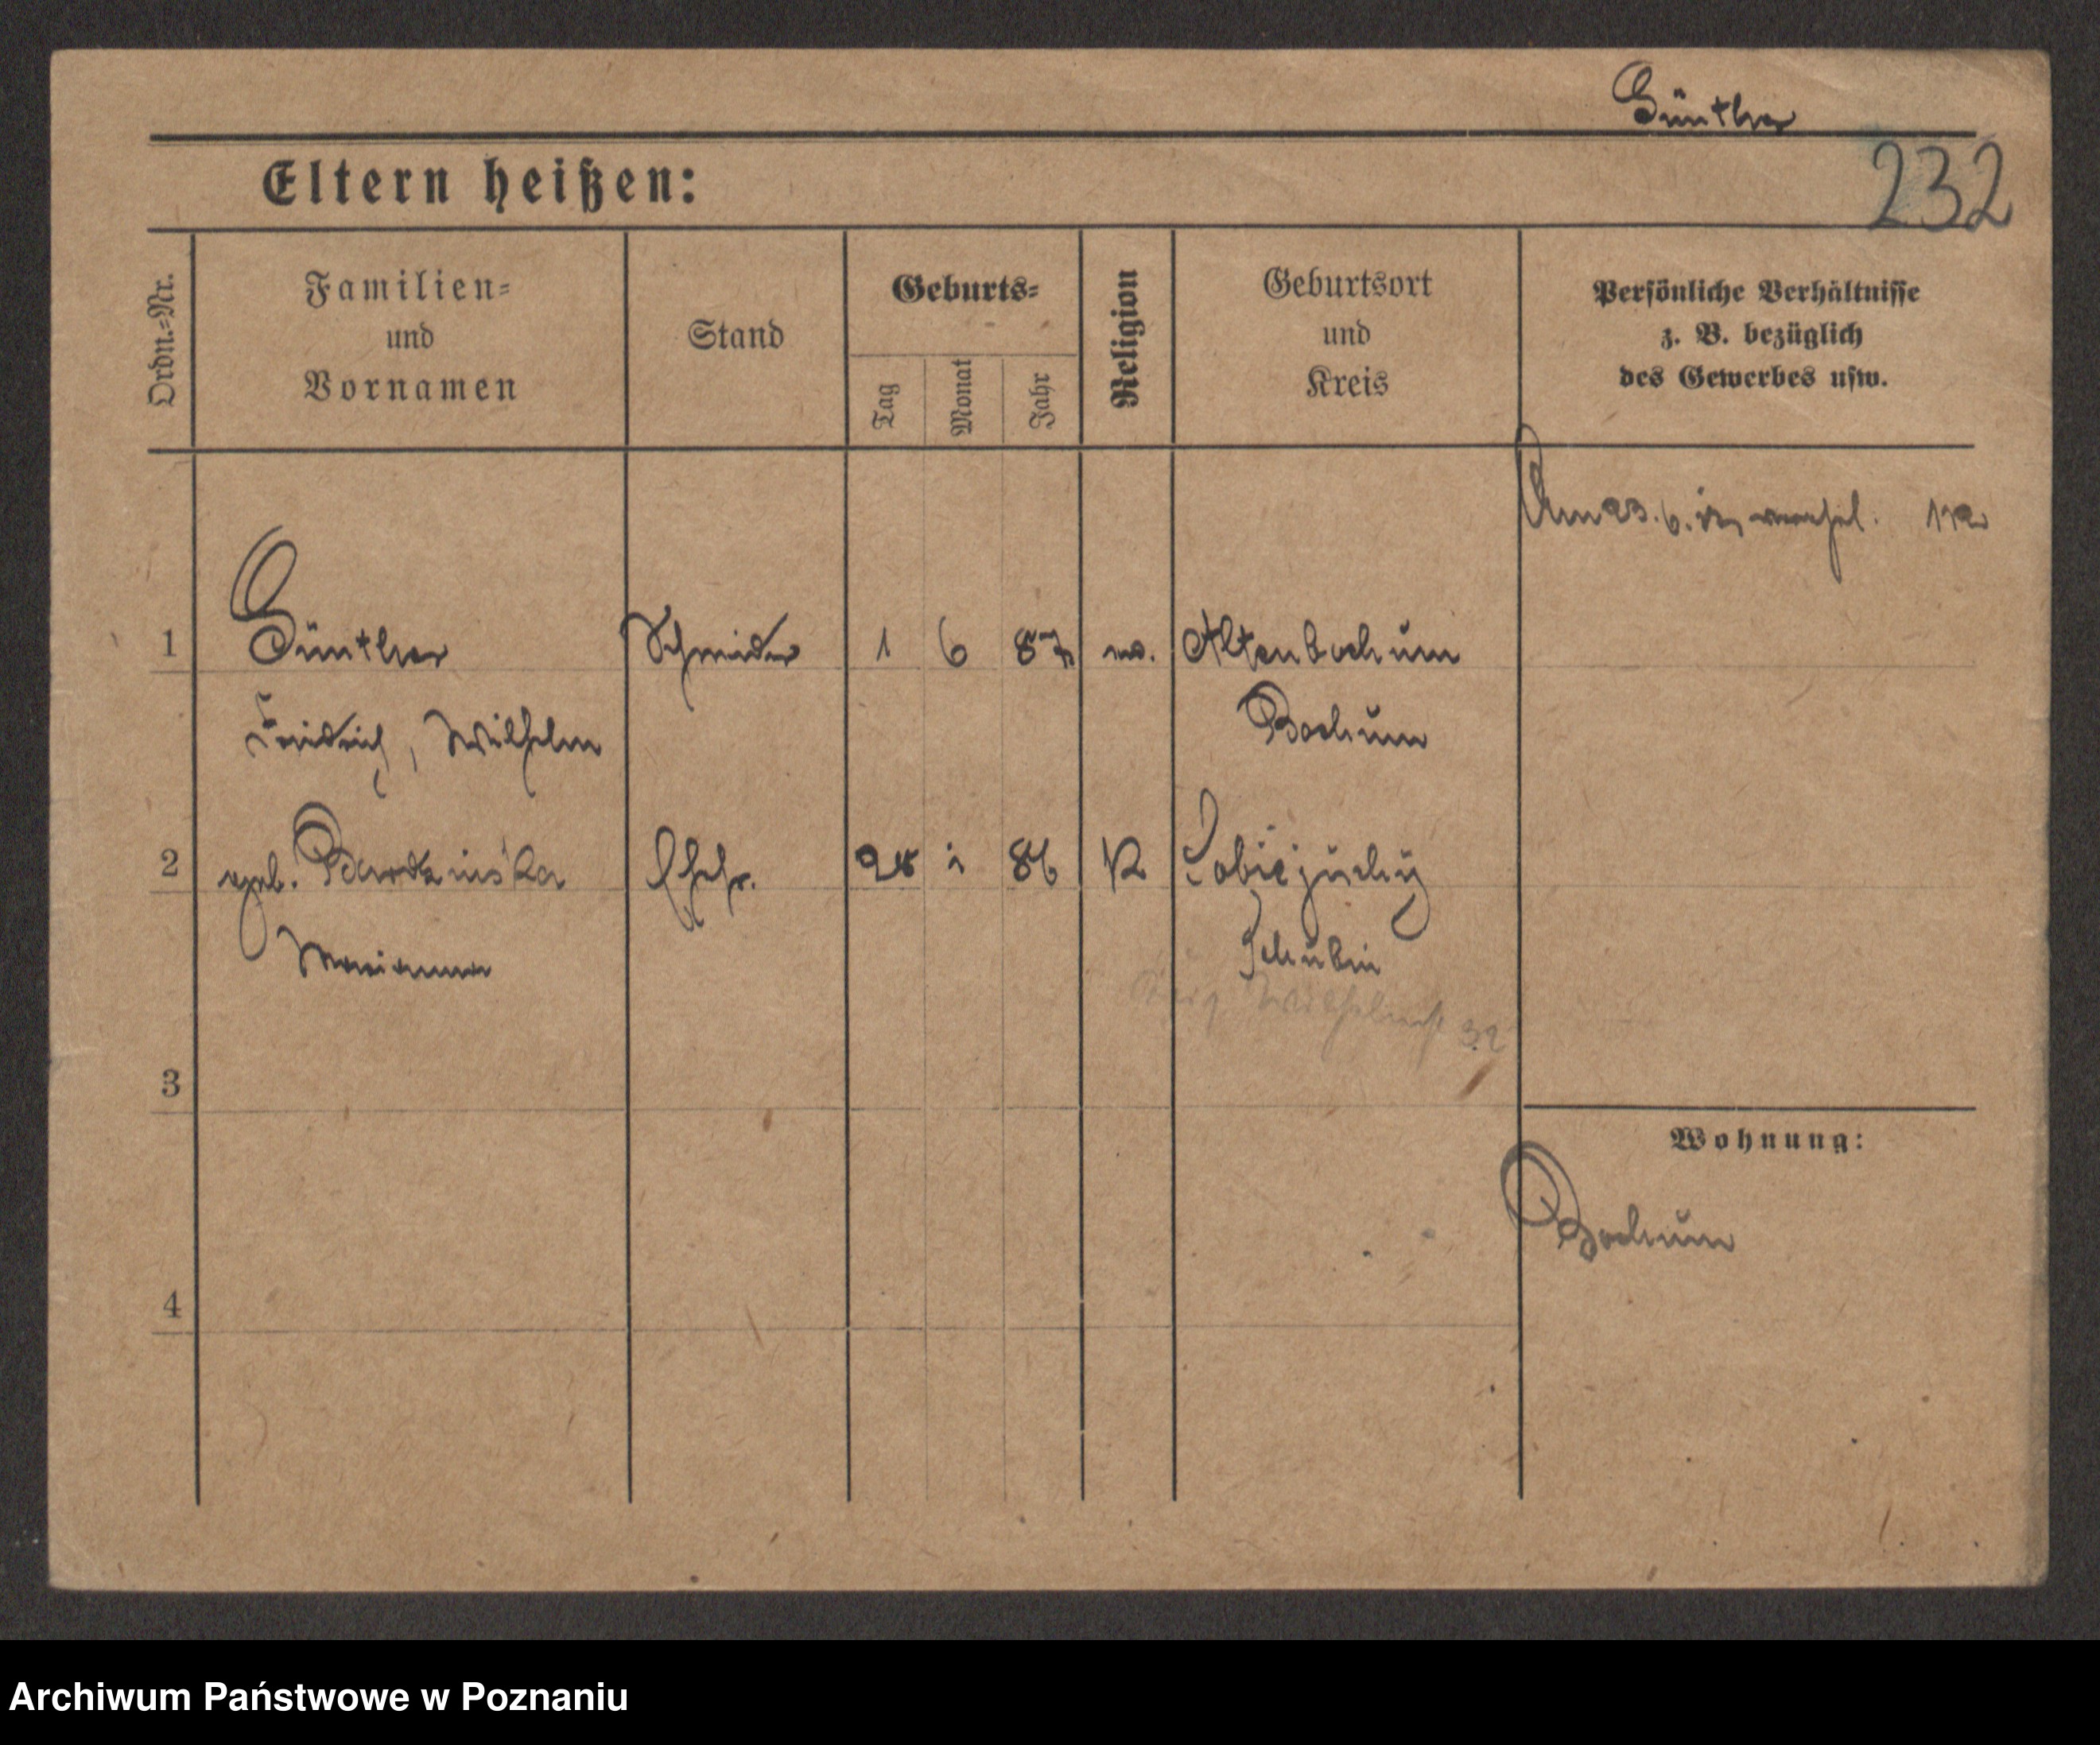 Günther
Eltern heißen:
232
Ordn.=Nr.
Familien=
und
Vornamen
Stand
Geburts=
Tag
Monat
Jahr
Religion
Geburtsort
und
Kreis
Persönliche Verhältnisse
z. B. bezüglich
des Gewerbes usw.
Am 23. 6.
1 Günther Schmied 1 6 87 Altenbochum
Friedrich, Wilhelm Bochum
2 geb. Ehefr. 86 K
Marianna Schubin
32
3
Wohnung:
Bochum
4
Archiwum Państwowe w Poznaniu